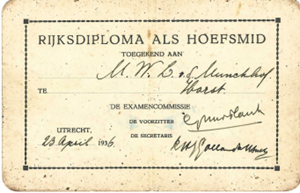 RIJKSDIPLOMA ALS HOEFSMID
TOEGEKEND AAN
M. W. L. v.d. Munckhof
TE Horst
DE EXAMENCOMMISSIE
DE VOORZITTER
UTRECHT, DE SECRETARIS
23 April 1936